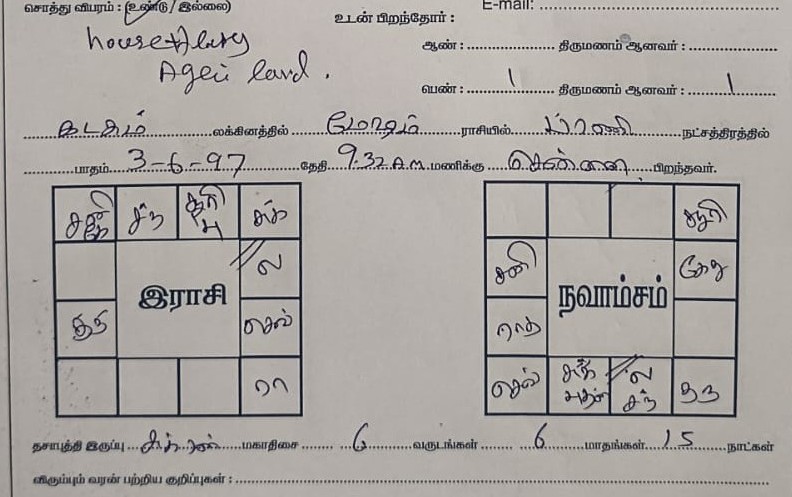 சொத்து விபரம் : (உண்டு / இல்லை) E-mail:
உடன் பிறந்தோர் :
house + lary
ஆண் : திருமணம் ஆனவர் :
Ageri land.
பெண் : 1 திருமணம் ஆனவர் : 1
கடகம் லக்கினத்தில் மேஷம் ராசியில் பரணி நட்சத்திரத்தில்
பாதம் 3-6-97 தேதி 9.32 A.M. மணிக்கு சென்னை பிறந்தவர்.
சனி கேது சந் சூரி பு சுக் சூரி
ல சனி கேது
இராசி நவாம்சம்
குரு செவ் ராகு
ரா செவ் சுக் புதன் ல சந் குரு
தசாபுத்தி இருப்பு சுக்ரன் மகாதிசை 6 வருடங்கள் 6 மாதங்கள் 15 நாட்கள்
விரும்பும் வரன் பற்றிய குறிப்புகள் :